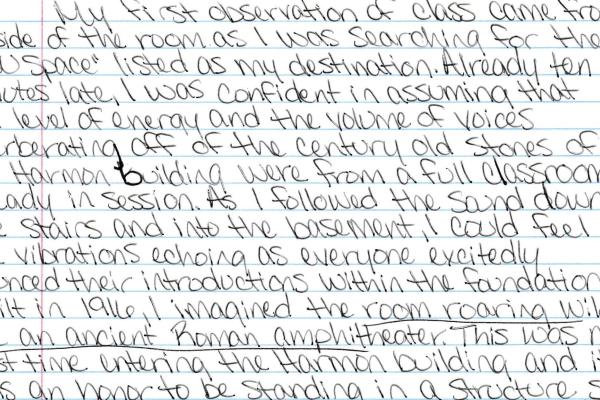 My first observation of class came fro
side of the room as I was searching for the
U Space" listed as my destination. Already ten
utes late, I was confident in assuming that
level of energy and the volume of voices
rberating off of the century old stones of
Harmon building were from a full classroom
ady in session. As I followed the sound down
e stairs and into the basement, I could feel
e vibrations echoing as everyone excitedly
nced their introductions within the foundation
ilt in 1916, I imagined the room roaring wi
e an ancient Roman amphitheater. This was n
st time entering the Harmon building and i
s an honor to be standing in a structure s